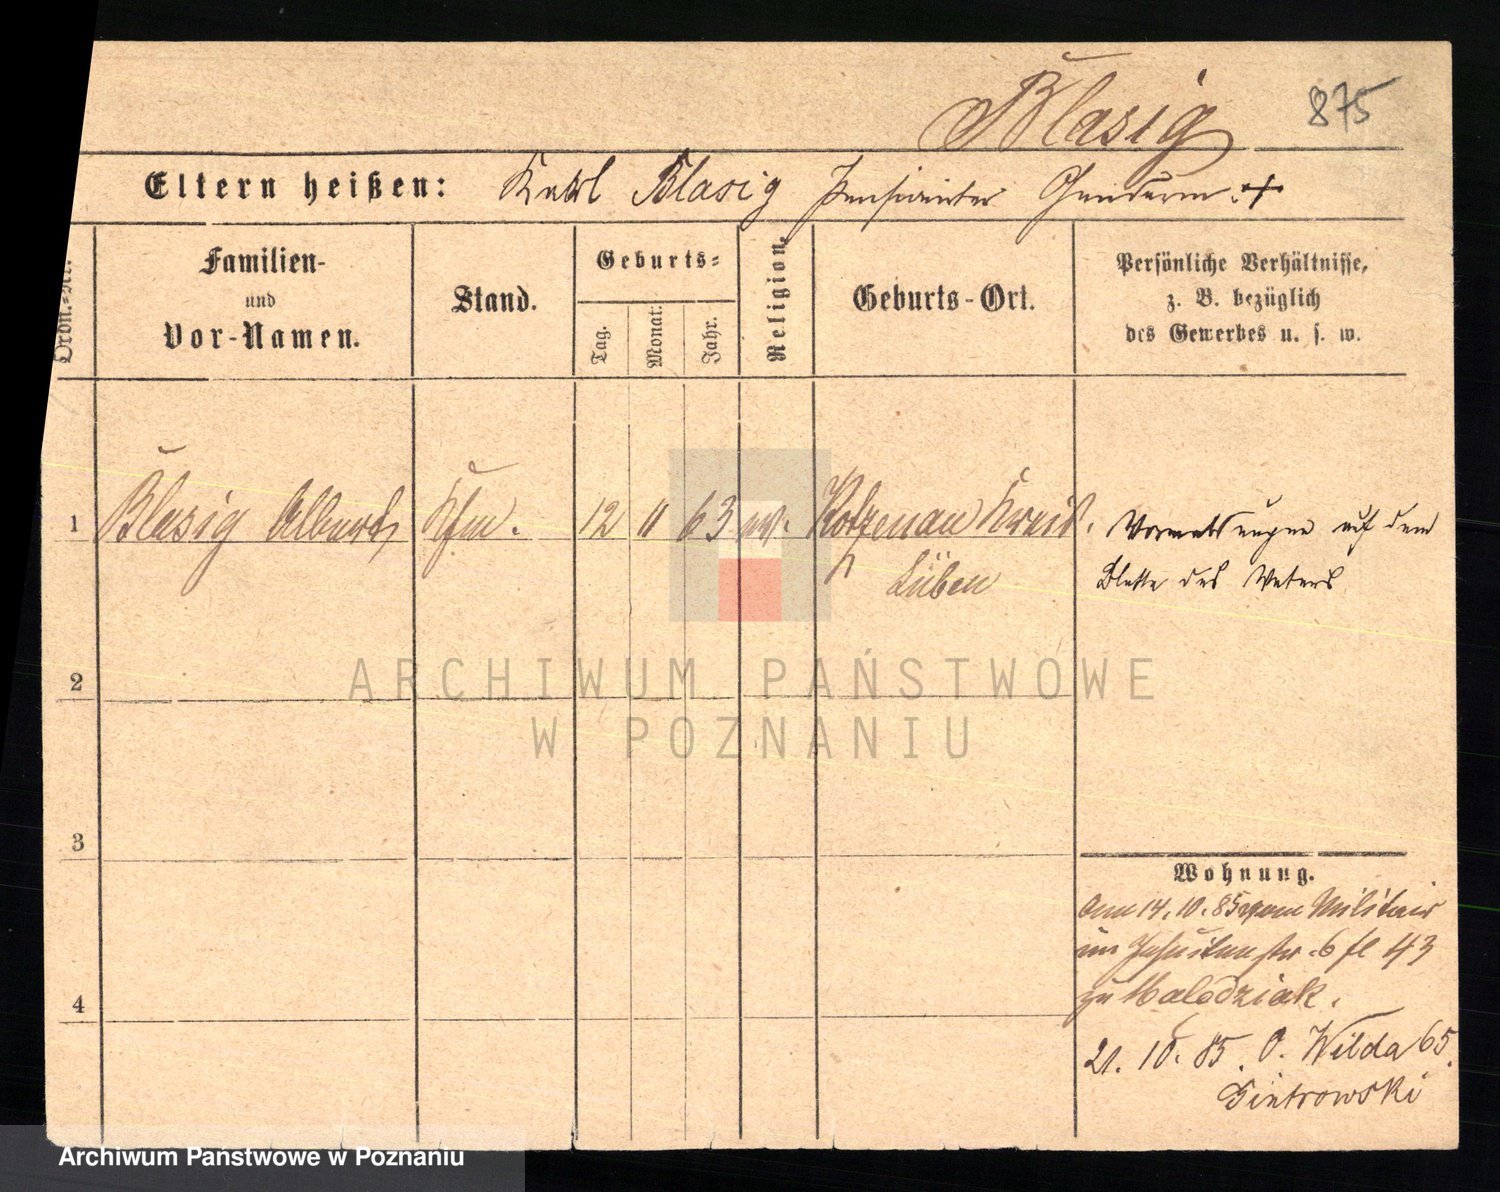 Blasig
875
Eltern heißen: Karl Blasig Pensionirter Gendarm. +
Ordn.-Nr.
Familien-
und
Vor-Namen.
Stand.
Geburts-
Tag.
Monat.
Jahr.
Religion.
Geburts-Ort.
Persönliche Verhältnisse,
z. B. bezüglich
des Gewerbes u. s. w.
1 Blasig Albert Kfm. 12 11 63 ev. Kotzenau Kreis
Lüben
auf dem
Blatte des Vaters
2
3
4
Wohnung.
14. 10. 85 vom Militair
Jesuitenstr. 6
zu
21. 10. 85. O. Wilda 65.
Pietrowski
ARCHIWUM PAŃSTWOWE
W POZNANIU
Archiwum Państwowe w Poznaniu